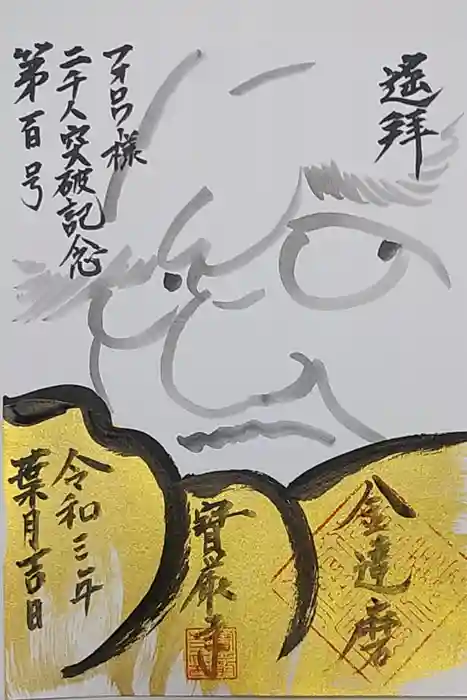 遥拝
フォロワ様
二千人突破記念
第百号
金達磨
寳嚴寺
令和三年
葉月吉日